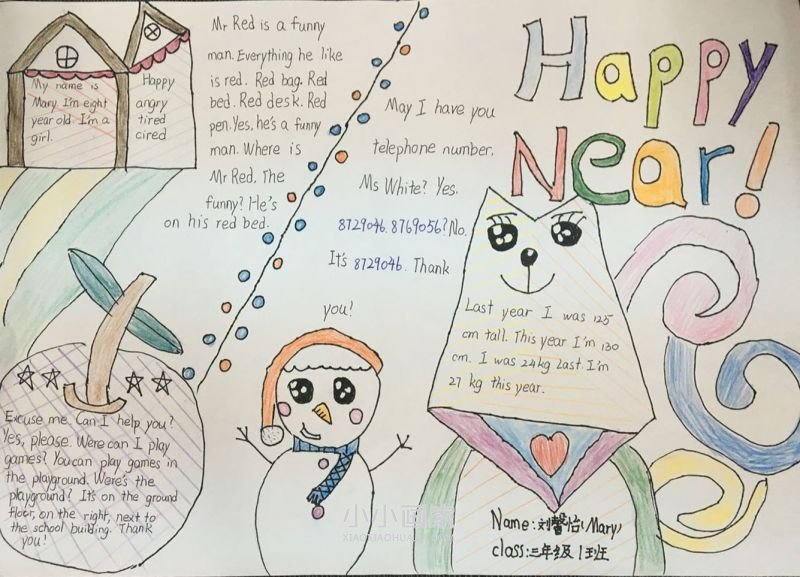 Happy
Near!
My name is
Mary. I'm eight
year old. I'm a
girl.
Happy
angry
tired
cired
Mr Red is a funny
man. Everything he like
is red. Red bag. Red
bed. Red desk. Red
pen. Yes, he's a funny
man. Where is
Mr Red. The
funny? He's
on his red bed.
May I have you
telephone number.
Ms White? Yes.
8729046. 8769056? No.
It's 8729046. Thank
you!
Last year I was 125
cm tall. This year I'm 130
cm. I was 24kg last. I'm
27 kg this year.
Excuse me. Can I help you?
Yes, please. Were can I play
games? You can play games in
the playground. Were's the
playground? It's on the ground
floor, on the right, next to
the school building. Thank
you!
Name: 刘馨怡(Mary)
class: 三年级1班
小小画家
XIAOXIAOHUAJIA